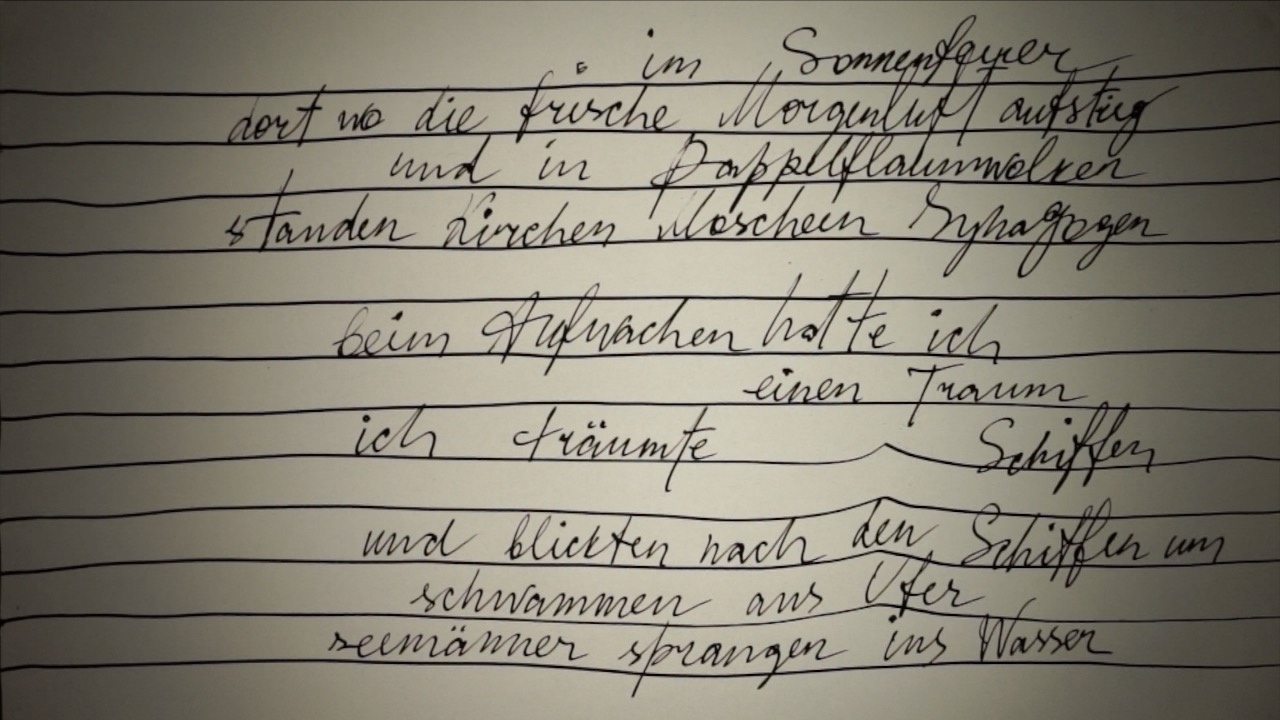 im Sonnenfeuer
dort wo die frische Morgenluft aufstieg
und in Pappelflaumwolken
standen Kirchen Moscheen Synagogen
beim Aufwachen hatte ich
einen Traum
ich träumte Schiffen
und blickten nach den Schiffen um
schwammen ans Ufer
seemänner sprangen ins Wasser